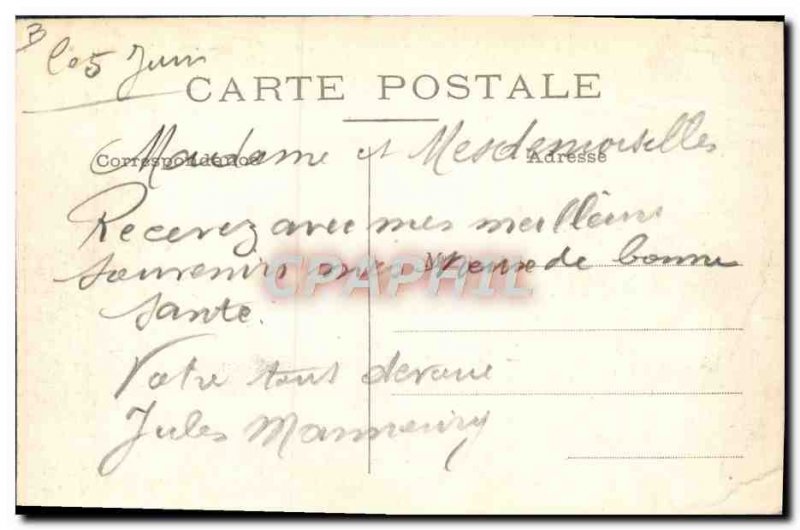 3
le 5 Juin
CARTE POSTALE
Correspondance
Adresse
Madame et Mesdemoiselles
Recevez avec mes meilleurs
souvenirs mes vœux de bonne
santé.
Votre tout dévoué
Jules
CPAPHIL